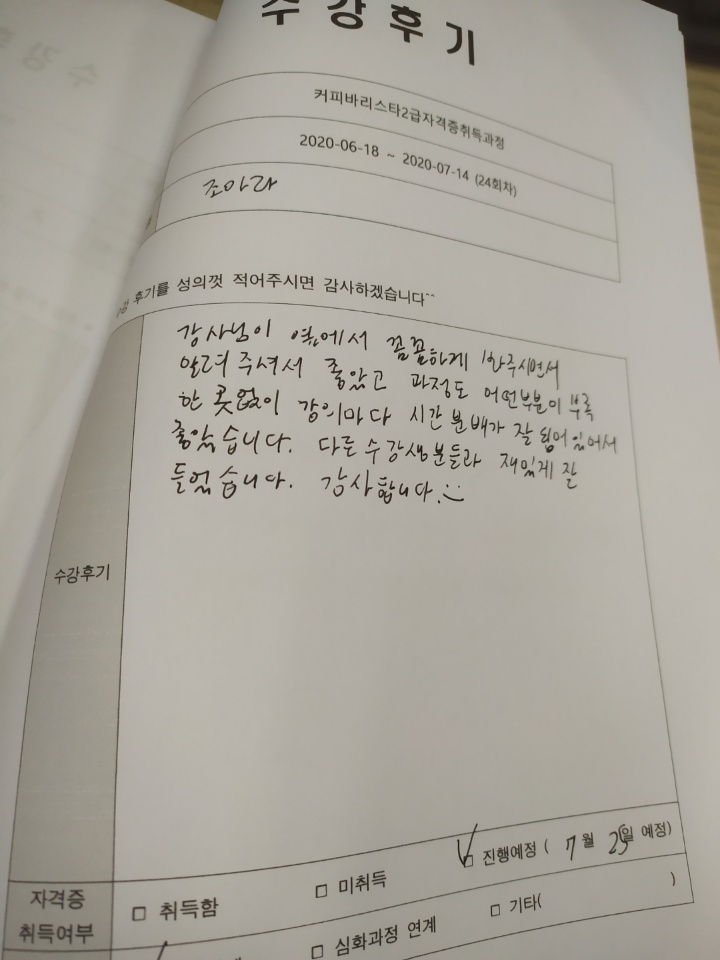 수강후기
커피바리스타2급자격증취득과정
2020-06-18 ~ 2020-07-14 (24회차)
조아라
후기를 성의껏 적어주시면 감사하겠습니다^^
강사님이 옆에서 꼼꼼하게 봐주시면서
알려주셔서 좋았고 과정도 어떤부분이 부족
한 곳없이 강의마다 시간 분배가 잘 되어있어서
좋았습니다. 다른 수강생분들과 재밌게 잘
들었습니다. 감사합니다.
수강후기
자격증
취득여부
□ 취득함 □ 미취득 □ 진행예정 ( 7월 25일 예정)
□ 심화과정 연계 □ 기타( )